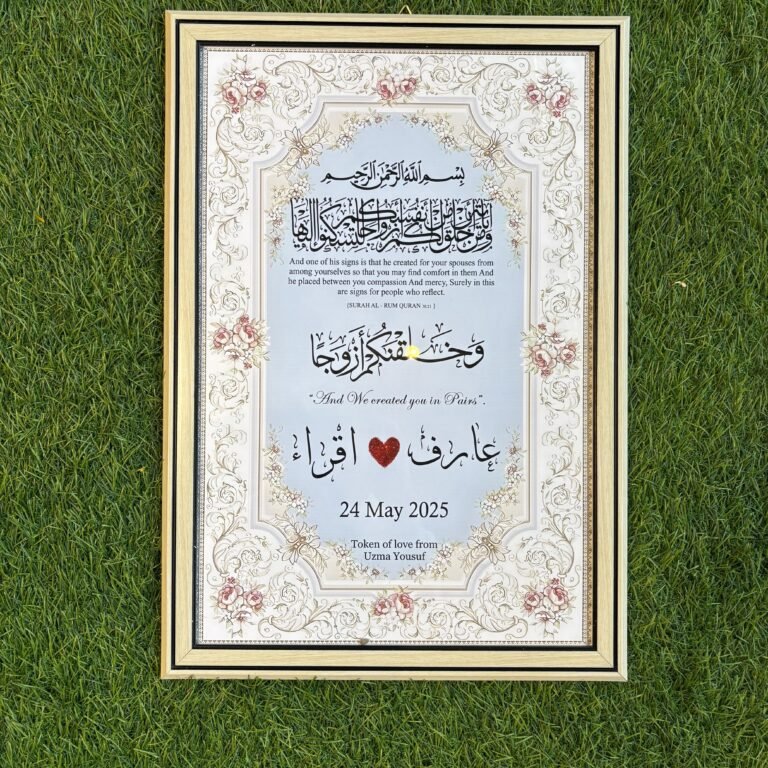 بِسْمِ اللَّهِ الرَّحْمَٰنِ الرَّحِيمِ
وَمِنْ آيَاتِهِ أَنْ خَلَقَ لَكُمْ مِنْ أَنْفُسِكُمْ أَزْوَاجًا لِتَسْكُنُوا إِلَيْهَا
And one of his signs is that he created for your spouses from
among yourselves so that you may find comfort in them And
he placed between you compassion And mercy, Surely in this
are signs for people who reflect.
[SURAH AL - RUM QURAN 30:21 ]
وَخَلَقْنَكُمْ أَزْوَجًا
"And We created you in Pairs".
عارف اقراء
24 May 2025
Token of love from
Uzma Yousuf